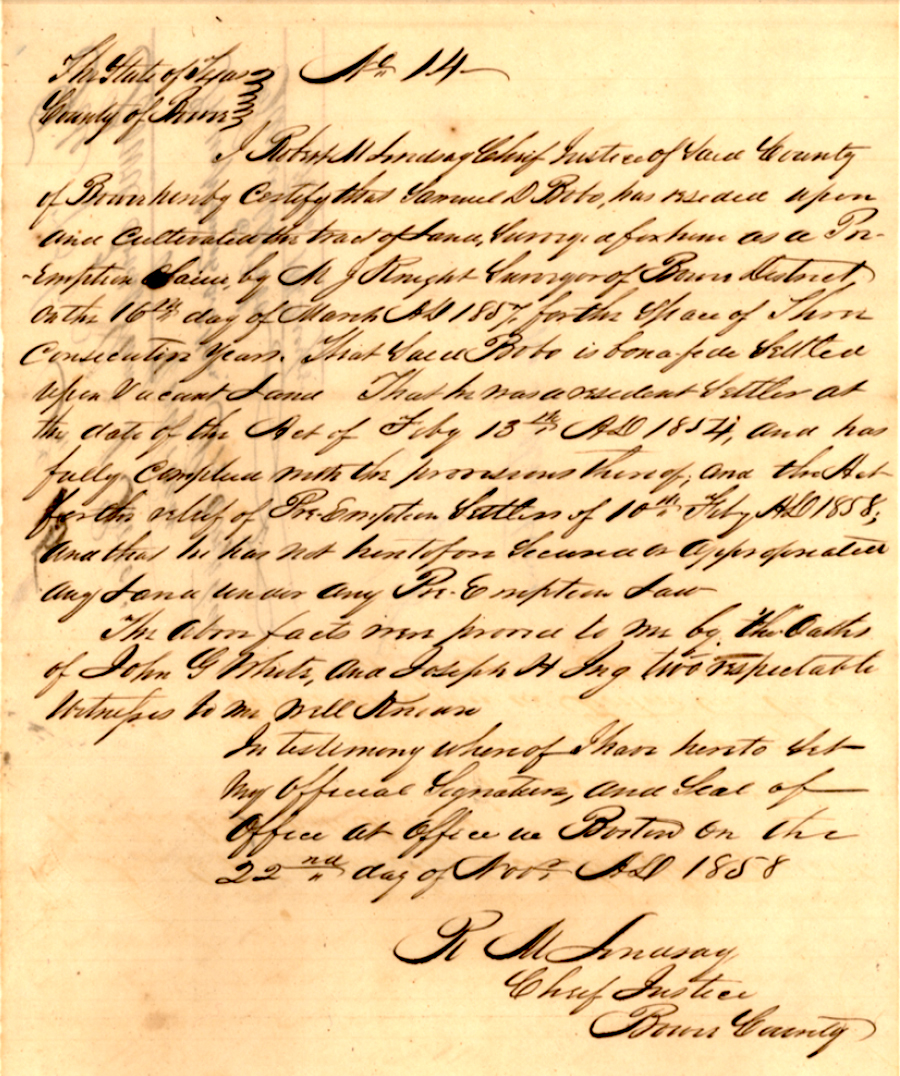 The State of Texas No 14
County of Bowie
I Robert M Lindsay Chief Justice of Said County
of Bowie hereby Certify that Samuel D Bobo, has resided upon
and Cultivated the tract of Land, Surveyed for him as a Pre-
-Emption Claim, by M J Knight Surveyor of Bowie District
on the 16th day of March AD 1857, for the Space of Three
Consecutive Years. That Said Bobo is bonafide Settled
upon Vacant Land That he was a resident Settler at
the date of the Act of Feby 13th AD 1854, and has
fully Complied with the provisions thereof; and the Act
for the relief of Pre-Emption Settlers of 10th Feby AD 1858;
and that he has not heretofore Secured or appropriated
any Land under any Pre-Emption Law
The above facts were proved to me by the Oaths
of John G White, and Joseph H Ing two respectable
Witnesses to me well Known
In testimony whereof I have hereto Set
my Official Signature, and Seal of
Office at Office in Boston on the
22nd day of Novr AD 1858
R M Lindsay
Chief Justice
Bowie County